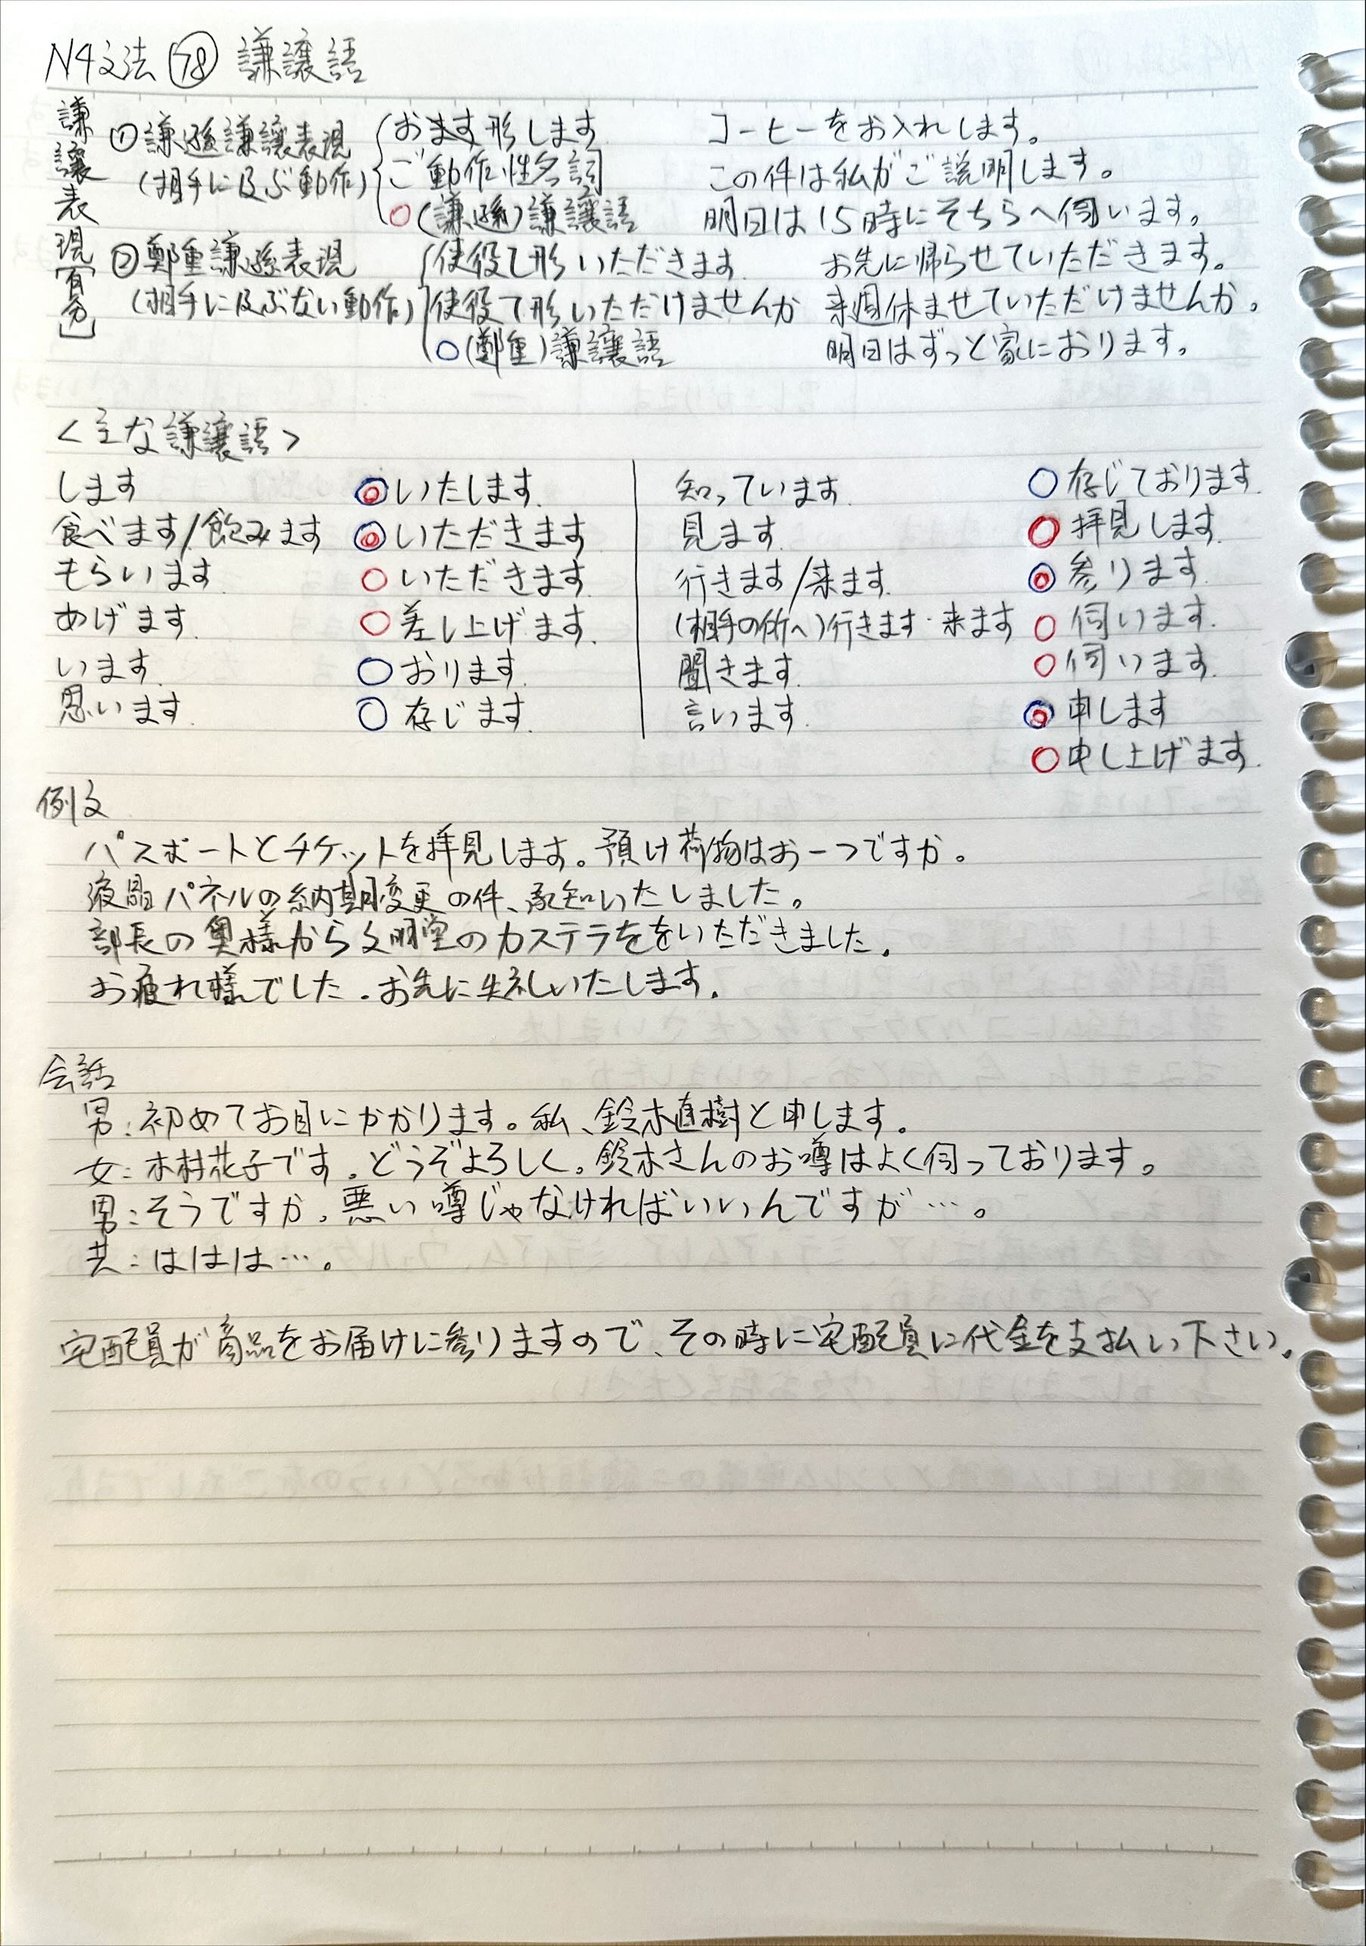 N4文法 78 謙譲語
謙譲表現[自分]
①謙遜謙譲表現 おます形します コーヒーをお入れします。
(相手に及ぶ動作) ご動作性名詞 この件は私がご説明します。
○(謙遜)謙譲語 明日は15時にそちらへ伺います。
②鄭重謙遜表現 使役て形いただきます お先に帰らせていただきます。
(相手に及ぶない動作) 使役て形いただけませんか 来週休ませていただけませんか。
○(鄭重)謙譲語 明日はずっと家におります。
<主な謙譲語>
します ◎いたします. 知っています. ○存じております.
食べます/飲みます ◎いただきます 見ます. ○拝見します.
もらいます. ○いただきます. 行きます/来ます. ◎参ります.
あげます. ○差し上げます. (相手の所へ)行きます・来ます ○伺います.
います. ○おります. 聞きます. ○伺います.
思います. ○存じます. 言います. ◎申します
○申し上げます.
例文
パスポートとチケットを拝見します。預け荷物はお一つですか。
液晶パネルの納期変更の件、承知いたしました。
部長の奥様から文明堂のカステラををいただきました。
お疲れ様でした。お先に失礼いたします。
会話
男:初めてお目にかかります。私、鈴木直樹と申します。
女:木村花子です。どうぞよろしく。鈴木さんのお噂はよく伺っております。
男:そうですか。悪い噂じゃなければいいんですが…。
共:ははは…。
宅配員が商品をお届けに参りますので、その時に宅配員に代金を支払い下さい。